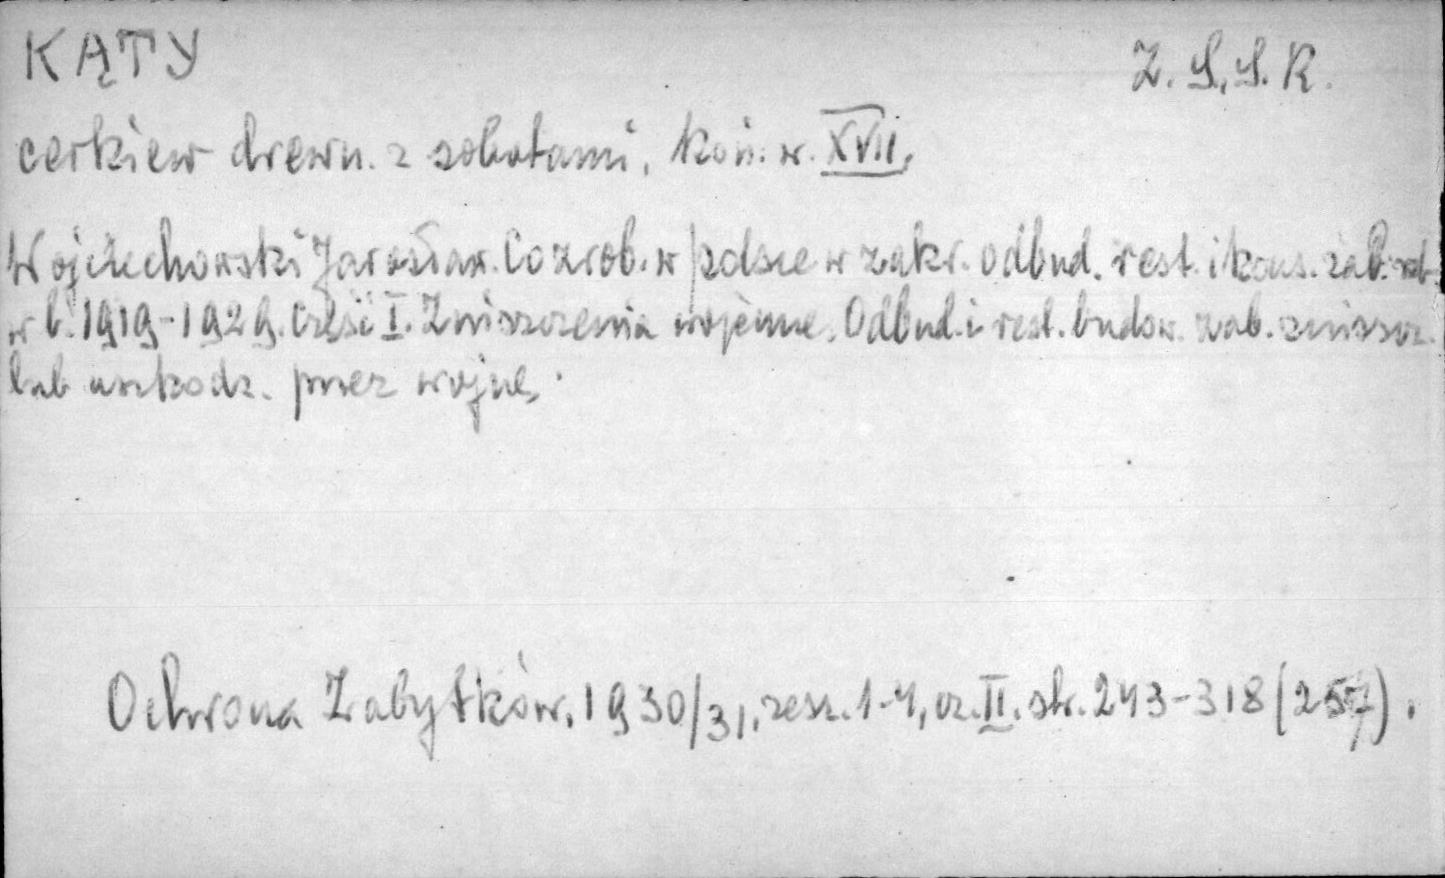 KĄTY
Z. S. S. R.
cerkiew drewn. z sobotami, koń. w. XVII.
Wojciechowski Jarosław. Co zrob. w Polsce w zakr. odbud. rest. i kons. zab.
w l. 1919-1929. Część I. Zniszczenia wojenne. Odbud. i rest. budow. zab. zniszcz.
lub uszkodz. przez wojnę.
Ochrona Zabytków, 1930/31, zesz. 1-4, cz. II. str. 243-318 (257).